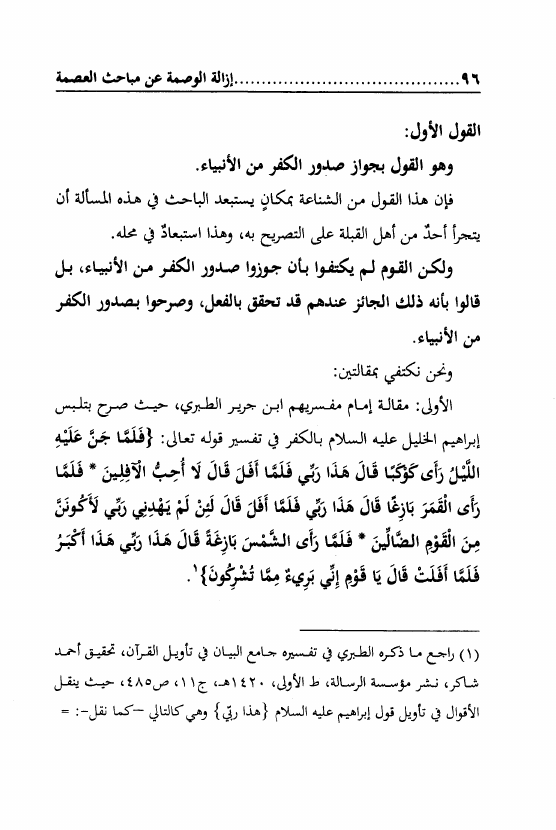 ٩٦..........................................إزالة الوصمة عن مباحث العصمة
القول الأول:
وهو القول بجواز صدور الكفر من الأنبياء.
فإن هذا القول من الشناعة بمكانٍ يستبعد الباحث في هذه المسألة أن
يتجرأ أحدٌ من أهل القبلة على التصريح به، وهذا استبعادٌ في محله.
ولكن القوم لم يكتفوا بأن جوزوا صدور الكفر من الأنبياء، بل
قالوا بأنه ذلك الجائز عندهم قد تحقق بالفعل، وصرحوا بصدور الكفر
من الأنبياء.
ونحن نكتفي بمقالتين:
الأولى: مقالة إمام مفسريهم ابن جرير الطبري، حيث صرح بتلبس
إبراهيم الخليل عليه السلام بالكفر في تفسير قوله تعالى: {فَلَمَّا جَنَّ عَلَيْهِ
اللَّيْلُ رَأَى كَوْكَبًا قَالَ هَذَا رَبِّي فَلَمَّا أَفَلَ قَالَ لَا أُحِبُّ الْآفِلِينَ * فَلَمَّا
رَأَى الْقَمَرَ بَازِغًا قَالَ هَذَا رَبِّي فَلَمَّا أَفَلَ قَالَ لَئِنْ لَمْ يَهْدِنِي رَبِّي لَأَكُونَنَّ
مِنَ الْقَوْمِ الضَّالِّينَ * فَلَمَّا رَأَى الشَّمْسَ بَازِغَةً قَالَ هَذَا رَبِّي هَذَا أَكْبَرُ
فَلَمَّا أَفَلَتْ قَالَ يَا قَوْمِ إِنِّي بَرِيءٌ مِمَّا تُشْرِكُونَ}١.
(١) راجع ما ذكره الطبري في تفسيره جامع البيان في تأويل القرآن، تحقيق أحمد
شاكر، نشر مؤسسة الرسالة، ط الأولى، ١٤٢٠هـ، ج١١، ص٤٨٥، حيث ينقل
الأقوال في تأويل قول إبراهيم عليه السلام {هذا ربّي} وهي كالتالي –كما نقل-: =